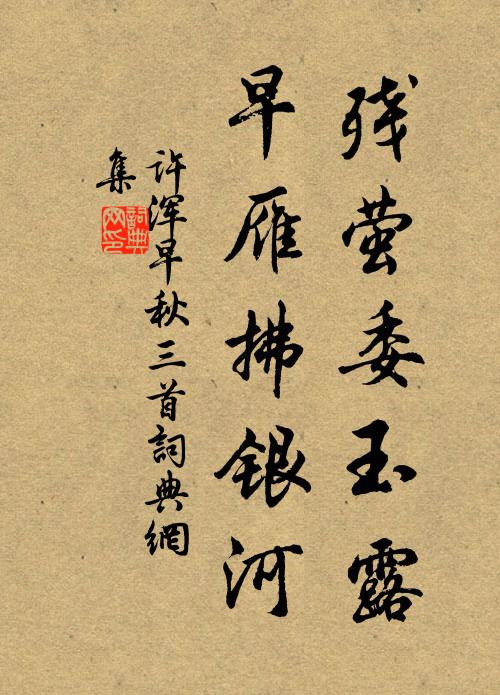 残萤委玉露
早雁拂银河
许浑早秋三首詞典網
集
詞典
网印